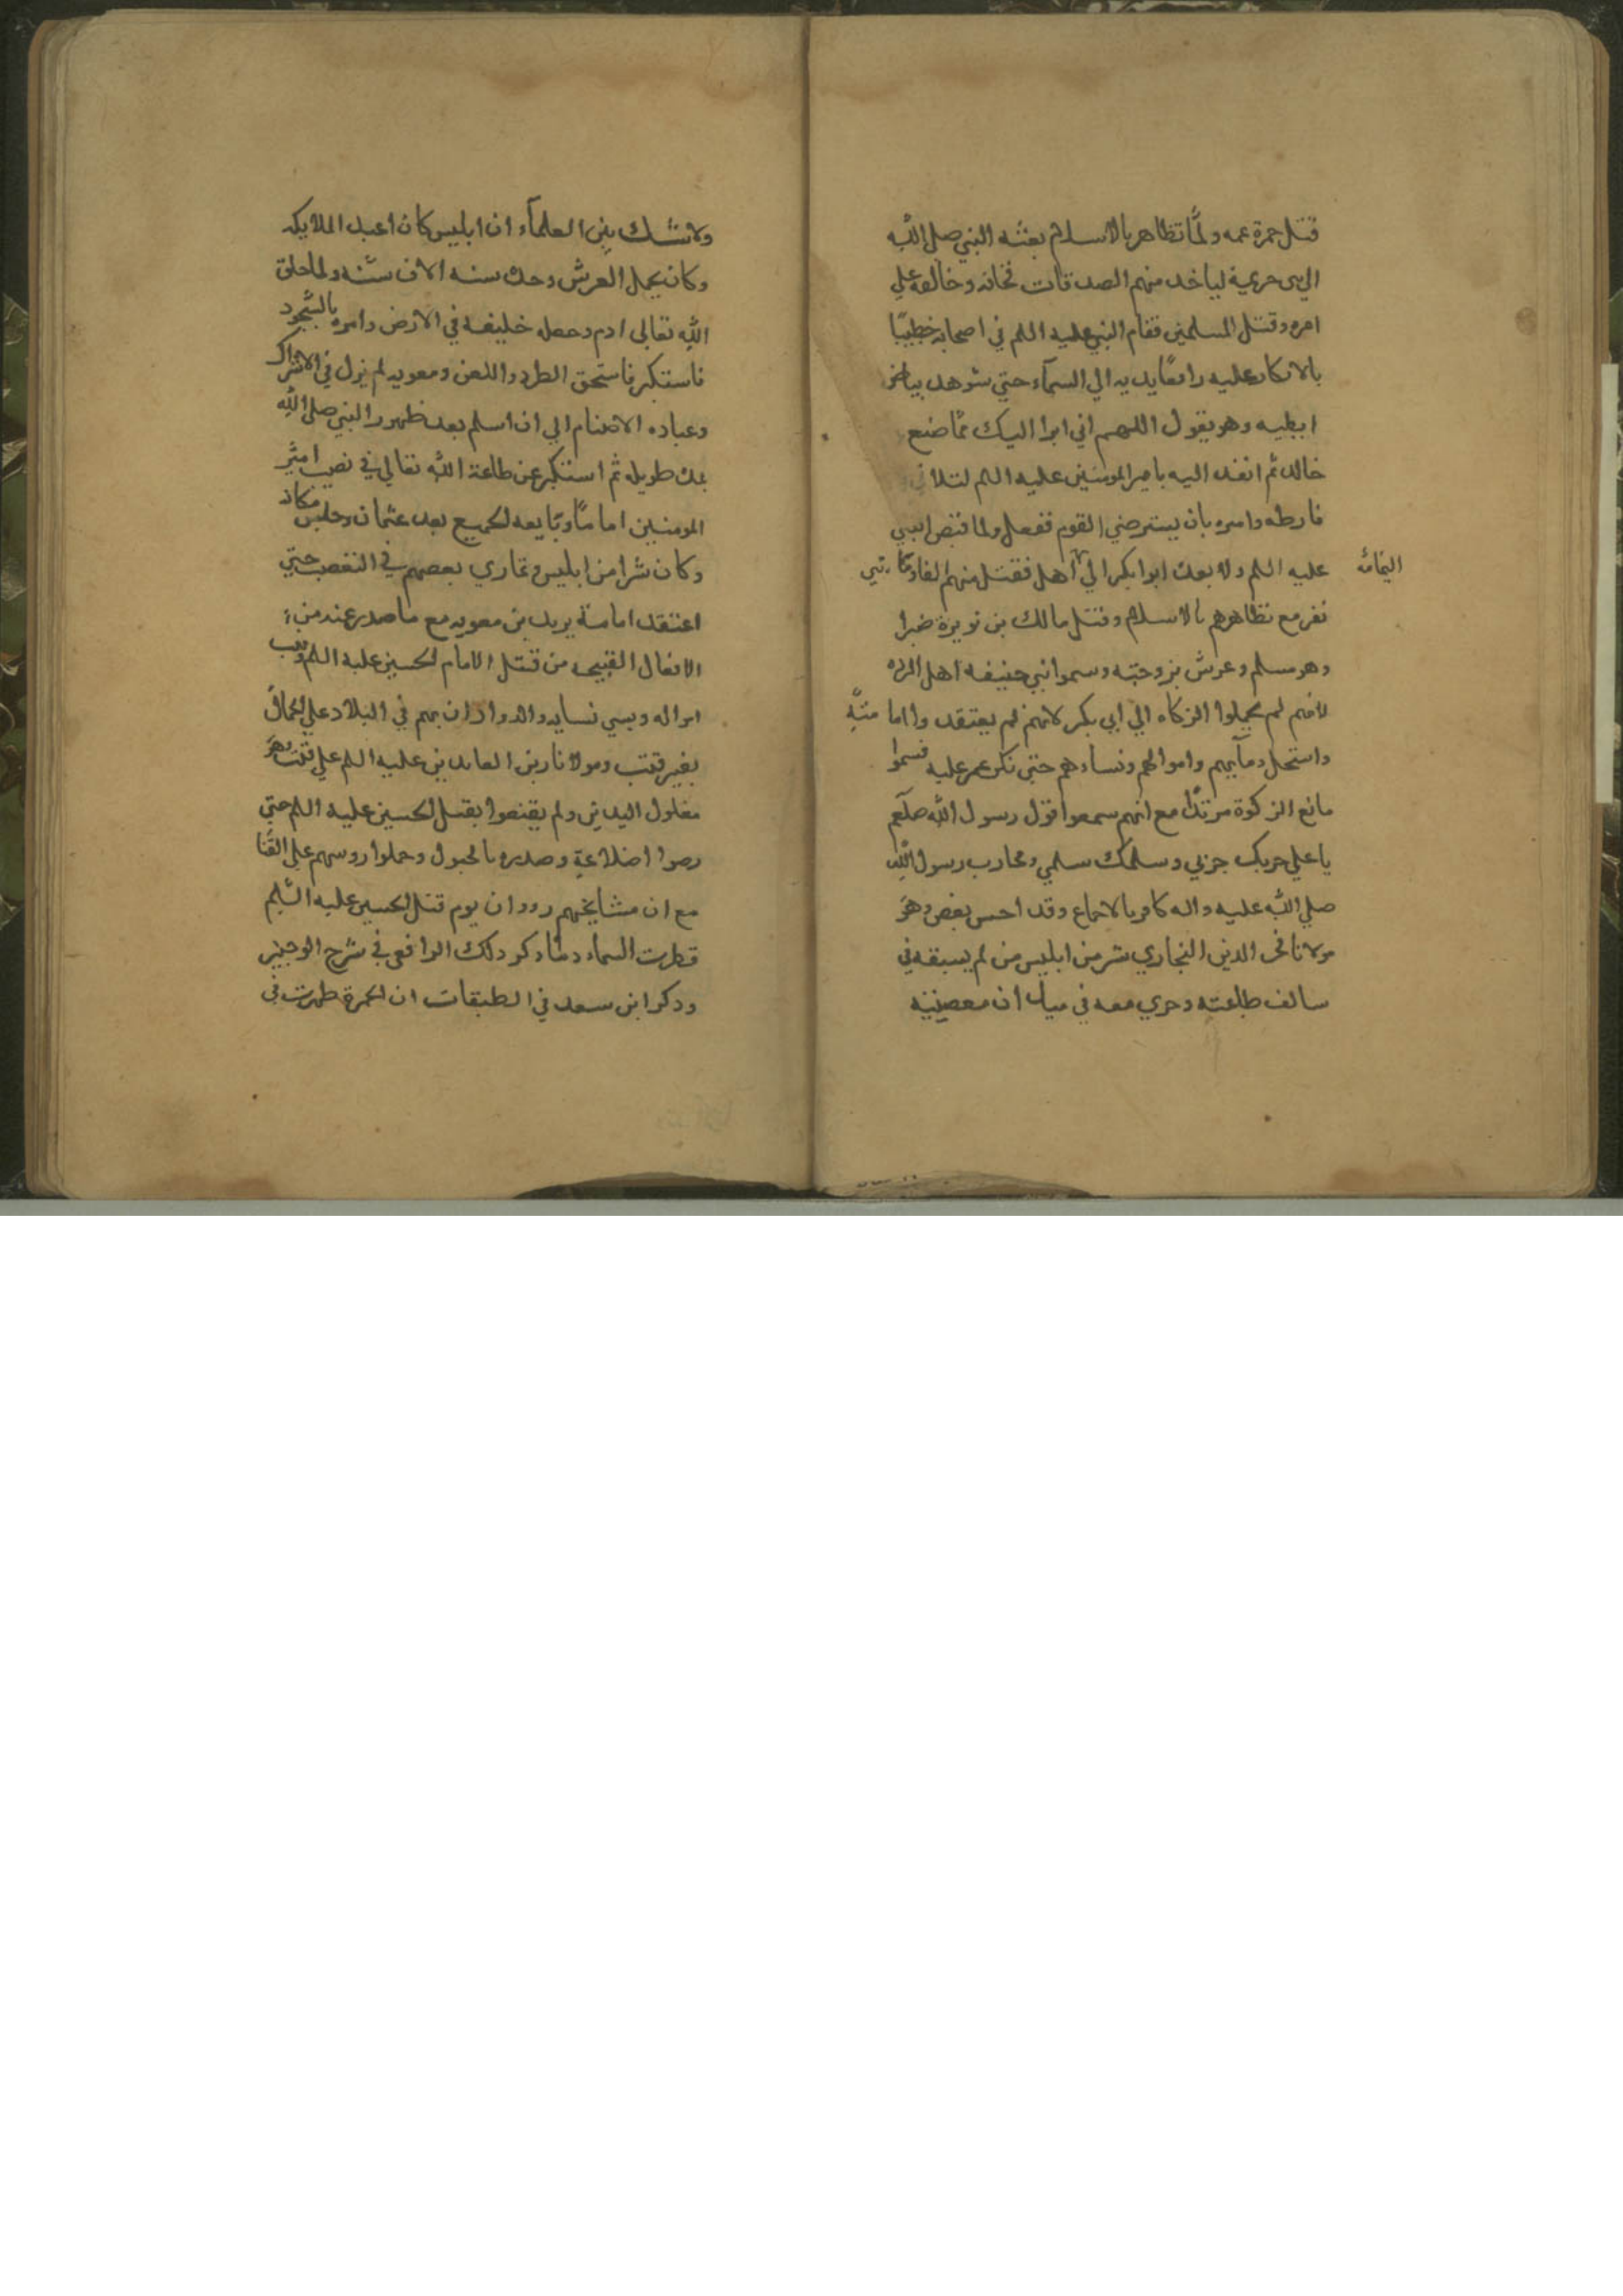 قتل حمزة عمه ولمّا تظاهر بالاسلام بعثه النبي صلى الله
الى بنى خزيمة لياخد منهم الصدقات فخانه وخالفه علي
امره وقتل المسلمين فقام النبي عليه السلم في اصحابه خطيبًا
بالانكار عليه رافعًا يديه الي السمآء حتي شوهد بياض
ابطيه وهو يقول اللهم اني ابرا اليك ممّا صنع
خالد ثم انفد اليه بامير المومنين عليه السلم لتلافي
فارطه وامره بان يسترضي القوم ففعل ولما قبض النبي
عليه السلم ولا بعث ابوا بكر الي اهل فقتل منهم الفا ومايتي
اليمامه
نفر مع تظاهرهم بالاسلام وقتل مالك بن نويرة صبرا
وهو مسلم وعرش بزوجته وسموا بني حنيفه اهل الرده
لانهم لم يحملوا الزكاه الي ابي بكر لانهم لم يعتقدوا امامته
واستحل دمآيهم واموالهم ونساءهم حتي نكر عمر عليه فسموا
مانع الزكوة مرتدًا مع انهم سمعوا قول رسول الله صلعم
يا علي حربك حربي وسلمك سلمي ومحارب رسول الله
صلي الله عليه واله كافر بالاجماع وقد احسن بعض وهو
مولانا فخر الدين النجاري شر من ابليس من لم يسبقه في
سالف طاعته وجري معه في ميدان معصيته
ولا شك بين العلمآء ان ابليس كان اعبد الملايكه
وكان يحمل العرش وحده سته الاف سنه ولما خلق
الله تعالى ادم وجعله خليفه في الارض وامره بالسجود
فاستكبر فاستحق الطرد واللعن ومعويه لم يزل في الاشراك
وعباده الاصنام الي ان اسلم بعد ظهور النبي صلى الله
بمدة طويله ثم استكبر عن طاعة الله تعالي في نصب امير
المومنين اماما وبايعه الجميع بعد عثمان وجلس مكانه
وكان شرا من ابليس وتماري بعضهم في التعصب حتي
اعتقد امامة يزيد بن معويه مع ما صدر عنه من
الافعال القبيحه من قتل الامام الحسين عليه السلم ونهب
امواله وسبي نسايه والدوران بهم في البلاد علي الجمال
بغير قتب ومولانا زين العابدين عليه السلم علي قتب وهو
مغلول اليدين ولم يقنعوا بقتل الحسين عليه السلم حتي
رضوا اضلاعه وصدره بالخيول وحملوا روسهم علي القنا
مع ان مشايخهم رووا ان يوم قتل الحسين عليه السلم
قطرت السماء دمًا وذكر ذلك الرافعي في شرح الوجيز
وذكر ابن سعد في الطبقات ان الحمرة ظهرت في